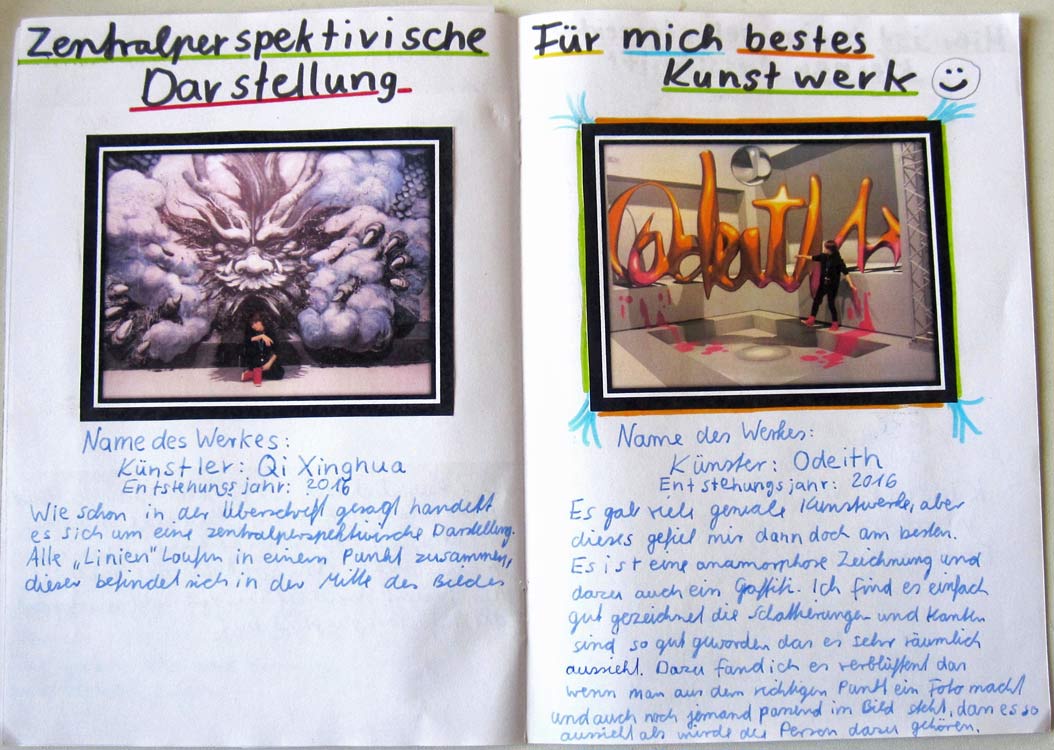 Zentralperspektivische
Darstellung
Name des Werkes:
Künstler: Qi Xinghua
Entstehungsjahr: 2016
Wie schon in der Überschrift gesagt handelt
es sich um eine zentralperspektivische Darstellung.
Alle „Linien" laufen in einem Punkt zusammen,
dieser befindet sich in der Mitte des Bildes
Für mich bestes
Kunstwerk
Odeith
Name des Werkes:
Künster: Odeith
Entstehungsjahr: 2016
Es gab viele geniale Kunstwerke, aber
dieses gefiel mir dann doch am besten.
Es ist eine anamorphose Zeichnung und
dazu auch ein Graffiti. Ich find es einfach
gut gezeichnet die Schattierungen und Kanten
sind so gut geworden das es sehr räumlich
aussieht. Dazu fand ich es verblüffent das
wenn man aus dem richtigen Punkt ein Foto macht
und auch noch jemand passend im Bild steht, dan es so
aussieht als würde die Person dazu gehören.